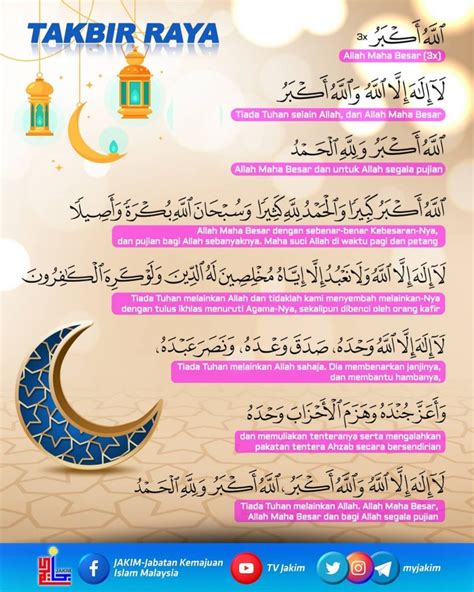 TAKBIR RAYA
اللَّهُ أَكْبَرُ 3x
Allah Maha Besar (3x)
لَا إِلَهَ إِلَّا اللَّهُ وَاللَّهُ أَكْبَرُ
Tiada Tuhan selain Allah, dan Allah Maha Besar
اللَّهُ أَكْبَرُ وَلِلَّهِ الْحَمْدُ
Allah Maha Besar dan untuk Allah segala pujian
اللَّهُ أَكْبَرُ كَبِيرًا وَالْحَمْدُ لِلَّهِ كَثِيرًا وَسُبْحَانَ اللَّهِ بُكْرَةً وَأَصِيلًا
Allah Maha Besar dengan sebenar-benar Kebesaran-Nya,
dan pujian bagi Allah sebanyaknya. Maha suci Allah di waktu pagi dan petang
لَا إِلَهَ إِلَّا اللَّهُ وَلَا نَعْبُدُ إِلَّا إِيَّاهُ مُخْلِصِينَ لَهُ الدِّينَ وَلَوْ كَرِهَ الْكَفِرُونَ
Tiada Tuhan melainkan Allah dan tidaklah kami menyembah melainkan-Nya
dengan tulus ikhlas menuruti Agama-Nya, sekalipun dibenci oleh orang kafir
لَا إِلَهَ إِلَّا اللَّهُ وَحْدَهُ، صَدَقَ وَعْدَهُ، وَنَصَرَ عَبْدَهُ،
Tiada Tuhan melainkan Allah sahaja. Dia membenarkan janjinya,
dan membantu hambanya,
وَأَعَزَّ جُنْدَهُ وَهَزَمَ الْأَحْزَابَ وَحْدَهُ
dan memuliakan tenteranya serta mengalahkan
pakatan tentera Ahzab secara bersendirian
لَا إِلَهَ إِلَّا اللَّهُ وَاللَّهُ أَكْبَرُ، اللَّهُ أَكْبَرُ وَلِلَّهِ الْحَمْدُ
Tiada Tuhan melainkan Allah. Allah Maha Besar,
Allah Maha Besar dan bagi Allah segala pujian
JAKIM
JAKIM-Jabatan Kemajuan
Islam Malaysia
TV Jakim
myjakim